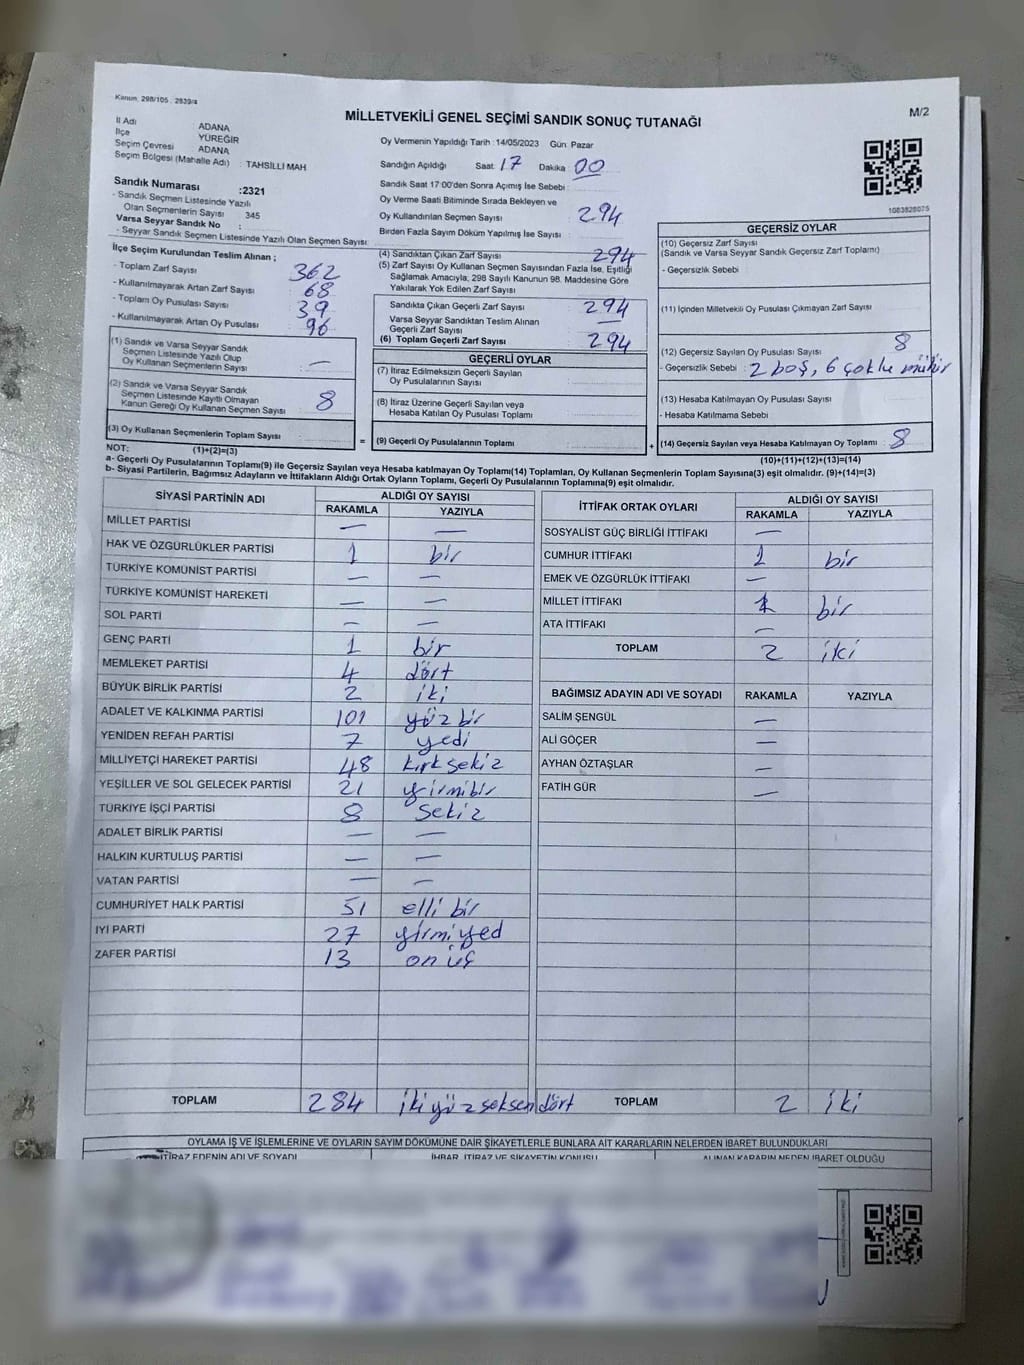 Kanun. 298/105 . 2839/4
M/2
MİLLETVEKİLİ GENEL SEÇİMİ SANDIK SONUÇ TUTANAĞI
İl Adı ADANA
İlçe YÜREĞİR
Seçim Çevresi ADANA
Seçim Bölgesi (Mahalle Adı) : TAHSİLLİ MAH
Oy Vermenin Yapıldığı Tarih : 14/05/2023 Gün Pazar
Sandığın Açıldığı Saat 17 Dakika 00
Sandık Saat 17:00'den Sonra Açımış İse Sebebi
Oy Verme Saati Bitiminde Sırada Bekleyen ve
Oy Kullandırılan Seçmen Sayısı 294
Birden Fazla Sayım Döküm Yapılmış İse Sayısı
1083828075
Sandık Numarası :2321
- Sandık Seçmen Listesinde Yazılı
Olan Seçmenlerin Sayısı : 345
Varsa Seyyar Sandık No :
- Seyyar Sandık Seçmen Listesinde Yazılı Olan Seçmen Sayısı
İlçe Seçim Kurulundan Teslim Alınan ;
- Toplam Zarf Sayısı 362
- Kullanılmayarak Artan Zarf Sayısı 68
- Toplam Oy Pusulası Sayısı
- Kullanılmayarak Artan Oy Pusulası 96
(1) Sandık ve Varsa Seyyar Sandık
Seçmen Listesinde Yazılı Olup
Oy Kullanan Seçmenlerin Sayısı —
(2) Sandık ve Varsa Seyyar Sandık
Seçmen Listesinde Kayıtlı Olmayan
Kanun Gereği Oy Kullanan Seçmen Sayısı 8
(3) Oy Kullanan Seçmenlerin Toplam Sayısı
(1)+(2)=(3)
(4) Sandıktan Çıkan Zarf Sayısı 294
(5) Zarf Sayısı Oy Kullanan Seçmen Sayısından Fazla İse, Eşitliği
Sağlamak Amacıyla, 298 Sayılı Kanunun 98. Maddesine Göre
Yakılarak Yok Edilen Zarf Sayısı
Sandıkta Çıkan Geçerli Zarf Sayısı 294
Varsa Seyyar Sandıktan Teslim Alınan
Geçerli Zarf Sayısı —
(6) Toplam Geçerli Zarf Sayısı 294
GEÇERLİ OYLAR
(7) İtiraz Edilmeksizin Geçerli Sayılan
Oy Pusulalarının Sayısı
(8) İtiraz Üzerine Geçerli Sayılan veya
Hesaba Katılan Oy Pusulası Toplamı
= (9) Geçerli Oy Pusulalarının Toplamı +
GEÇERSİZ OYLAR
(10) Geçersiz Zarf Sayısı
(Sandık ve Varsa Seyyar Sandık Geçersiz Zarf Toplamı)
- Geçersizlik Sebebi
(11) İçinden Milletvekili Oy Pusulası Çıkmayan Zarf Sayısı
(12) Geçersiz Sayılan Oy Pusulası Sayısı 8
- Geçersizlik Sebebi : 2 boş, 6 çoklu mühür
(13) Hesaba Katılmayan Oy Pusulası Sayısı
- Hesaba Katılmama Sebebi
(14) Geçersiz Sayılan veya Hesaba Katılmayan Oy Toplamı 8
(10)+(11)+(12)+(13)=(14)
NOT;
a- Geçerli Oy Pusulalarının Toplamı(9) ile Geçersiz Sayılan veya Hesaba katılmayan Oy Toplamı(14) Toplamları, Oy Kullanan Seçmenlerin Toplam Sayısına(3) eşit olmalıdır. (9)+(14)=(3)
b- Siyasi Partilerin, Bağımsız Adayların ve İttifakların Aldığı Ortak Oyların Toplamı, Geçerli Oy Pusulalarının Toplamına(9) eşit olmalıdır.
SİYASİ PARTİNİN ADI ALDIĞI OY SAYISI
RAKAMLA YAZIYLA
MİLLET PARTİSİ — —
HAK VE ÖZGÜRLÜKLER PARTİSİ 1 bir
TÜRKİYE KOMÜNİST PARTİSİ — —
TÜRKİYE KOMÜNİST HAREKETİ — —
SOL PARTİ — —
GENÇ PARTİ 1 bir
MEMLEKET PARTİSİ 4 dört
BÜYÜK BİRLİK PARTİSİ 2 iki
ADALET VE KALKINMA PARTİSİ 101 yüz bir
YENİDEN REFAH PARTİSİ 7 yedi
MİLLİYETÇİ HAREKET PARTİSİ 48 kırk sekiz
YEŞİLLER VE SOL GELECEK PARTİSİ 21 yirmibir
TÜRKİYE İŞÇİ PARTİSİ 8 sekiz
ADALET BİRLİK PARTİSİ — —
HALKIN KURTULUŞ PARTİSİ — —
VATAN PARTİSİ — —
CUMHURİYET HALK PARTİSİ 51 elli bir
İYİ PARTİ 27 yirmi yed
ZAFER PARTİSİ 13 on üç
TOPLAM 284 iki yüz seksen dört
İTTİFAK ORTAK OYLARI ALDIĞI OY SAYISI
RAKAMLA YAZIYLA
SOSYALİST GÜÇ BİRLİĞİ İTTİFAKI —
CUMHUR İTTİFAKI 1 bir
EMEK VE ÖZGÜRLÜK İTTİFAKI —
MİLLET İTTİFAKI 1 bir
ATA İTTİFAKI —
TOPLAM 2 iki
BAĞIMSIZ ADAYIN ADI VE SOYADI RAKAMLA YAZIYLA
SALİM ŞENGÜL —
ALİ GÖÇER —
AYHAN ÖZTAŞLAR —
FATİH GÜR —
TOPLAM 2 iki
OYLAMA İŞ VE İŞLEMLERİNE VE OYLARIN SAYIM DÖKÜMÜNE DAİR ŞİKAYETLERLE BUNLARA AİT KARARLARIN NELERDEN İBARET BULUNDUKLARI
İTİRAZ EDENİN ADI VE SOYADI İHBAR, İTİRAZ VE ŞİKAYETİN KONUSU ALINAN KARARIN NEDEN İBARET OLDUĞU